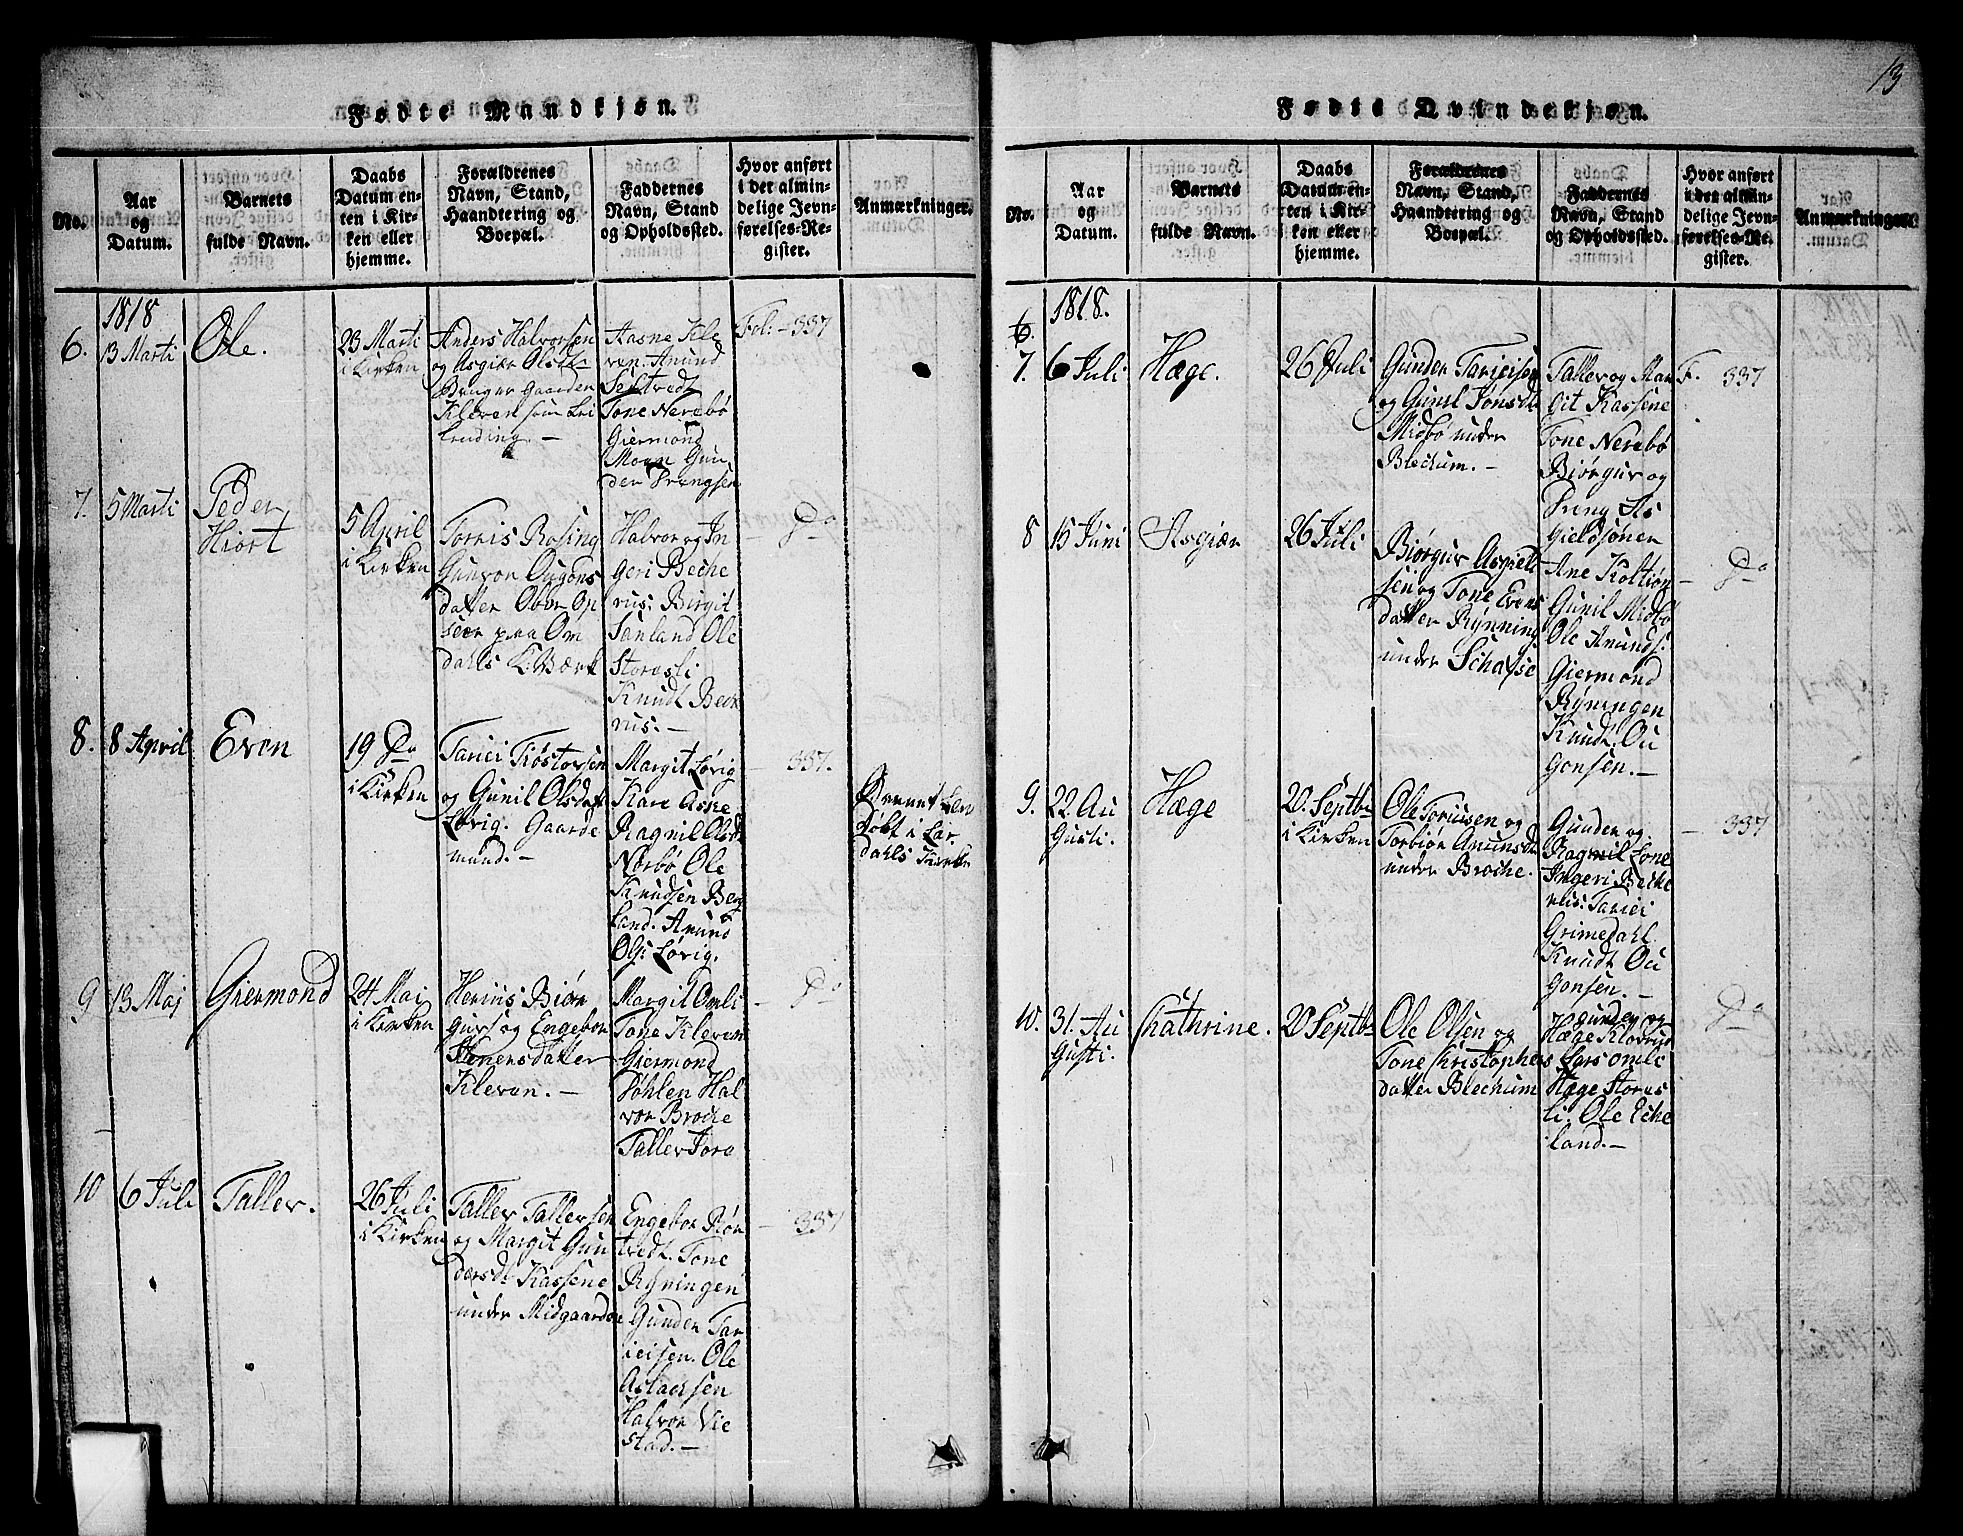 Fødte Mandkjøn.
No.
Aar og Datum.
Barnets fulde Navn.
Daabs Datum enten i Kirken eller hjemme.
Forældrenes Navn, Stand, Haandtering og Boepæl.
Faddernes Navn, Stand og Opholdssted.
Hvor anført i det almindelige Jevnførelses-Register.
Anmærkninger.
1818
6.
13 Marti
Ole.
23 Marti
i Kirken
Anders Halvorsen
og Asgier Olsdt.
Bruger Gaarden
Kleven som Lei
lending. –
Aasne Kle
ven. Anund
Seltvedt
Tone Nerebø
Giermond
Moen Gun
der Prengsen
Fol: – 337
7.
5 Marti
Peder
Hiort
5 April
i Kirken
Tornis Rosing
Gunvor Ougons
datter Ober Op
seer paa Om
dahls K: Værk
Halvor og In
geri Beche
rus: Birgit
Sanland Ole
Storesli
Knudt Bech
rus. –
– Do
8.
8 April
Even
19 Do
i Kirken
Tariei Trøstersen
og Gunil Olsdatt
Løvig. Gaarde
mand. –
Margit Løvig
Kare Aske
Ragnil Olsd.
Norbø Ole
Knudsen Berg
land. Anund
Ols: Løvig.
– 337.
døbt i Lar
dahls Kirke
9
13 Maj
Giermond
24 Mai
i Kirken
Herius Biør
gufs og Engebor
Stenersdatter
Kleven. –
Margit Omli
Tone Kleven
Giermond
Døhlen Hal
vor Broche
Taller Joro
– Do
10
6 Juli
Taller.
26 Juli
i Kirken
Taller Tallersen
og Margit Gun
dersdt. Kassene
under Midgaarden
Engebor Røn
tvedt. Tone
Ryningen
Gunder Tar
ieisen. Ole
Aslachsen
Halvor Vie
stad. –
– 337
13
Fødte Qvindekjøn.
No.
Aar og Datum.
Barnets fulde Navn.
Daabs Datum enten i Kirken eller hjemme.
Forældrenes Navn, Stand, Haandtering og Boepæl.
Faddernes Navn, Stand og Opholdssted.
Hvor anført i den almindelige Jevnførelses-Register.
Anmærkninger.
1818.
6.
7.
6 Juli
Hæge.
26 Juli
Gunder Tarieisen
og Gunil Jonsd.
Midbø under
Blechum. –
Taller og Mar
git Kassene
Tone Nerebø
Biørgus og
Preng As
gieldsønen
F. 337
8
15 Juni
Asgiær
26 Juli
Biørgus Asgield
sen og Tone Evens
datter Rynning
under Schafse
Ane Koltiøn
Gunil Midbø
Ole Anunds:
Giermond
Ryningen
Knudt Ou
gonsen. –
– Do
9.
22 Au
Gusti.
Hæge
20. Septbr
i Kirken
Ole Toriussen og
Torbiør Anunsd.
under Broche.
Gunder og
Ragnil Lone
Ingeri Beche
rus: Tariei
Grimedahl
Knudt Ou
gonsen. –
– 337
10.
31. Au
Gusti.
Chathrine.
20 Septbr
Ole Olsen og
Tone Christophers
datter Blechum
Gunder og
Hæge
Lars Omli
Hæge Stores
li. Ole Eche
land. –
Do